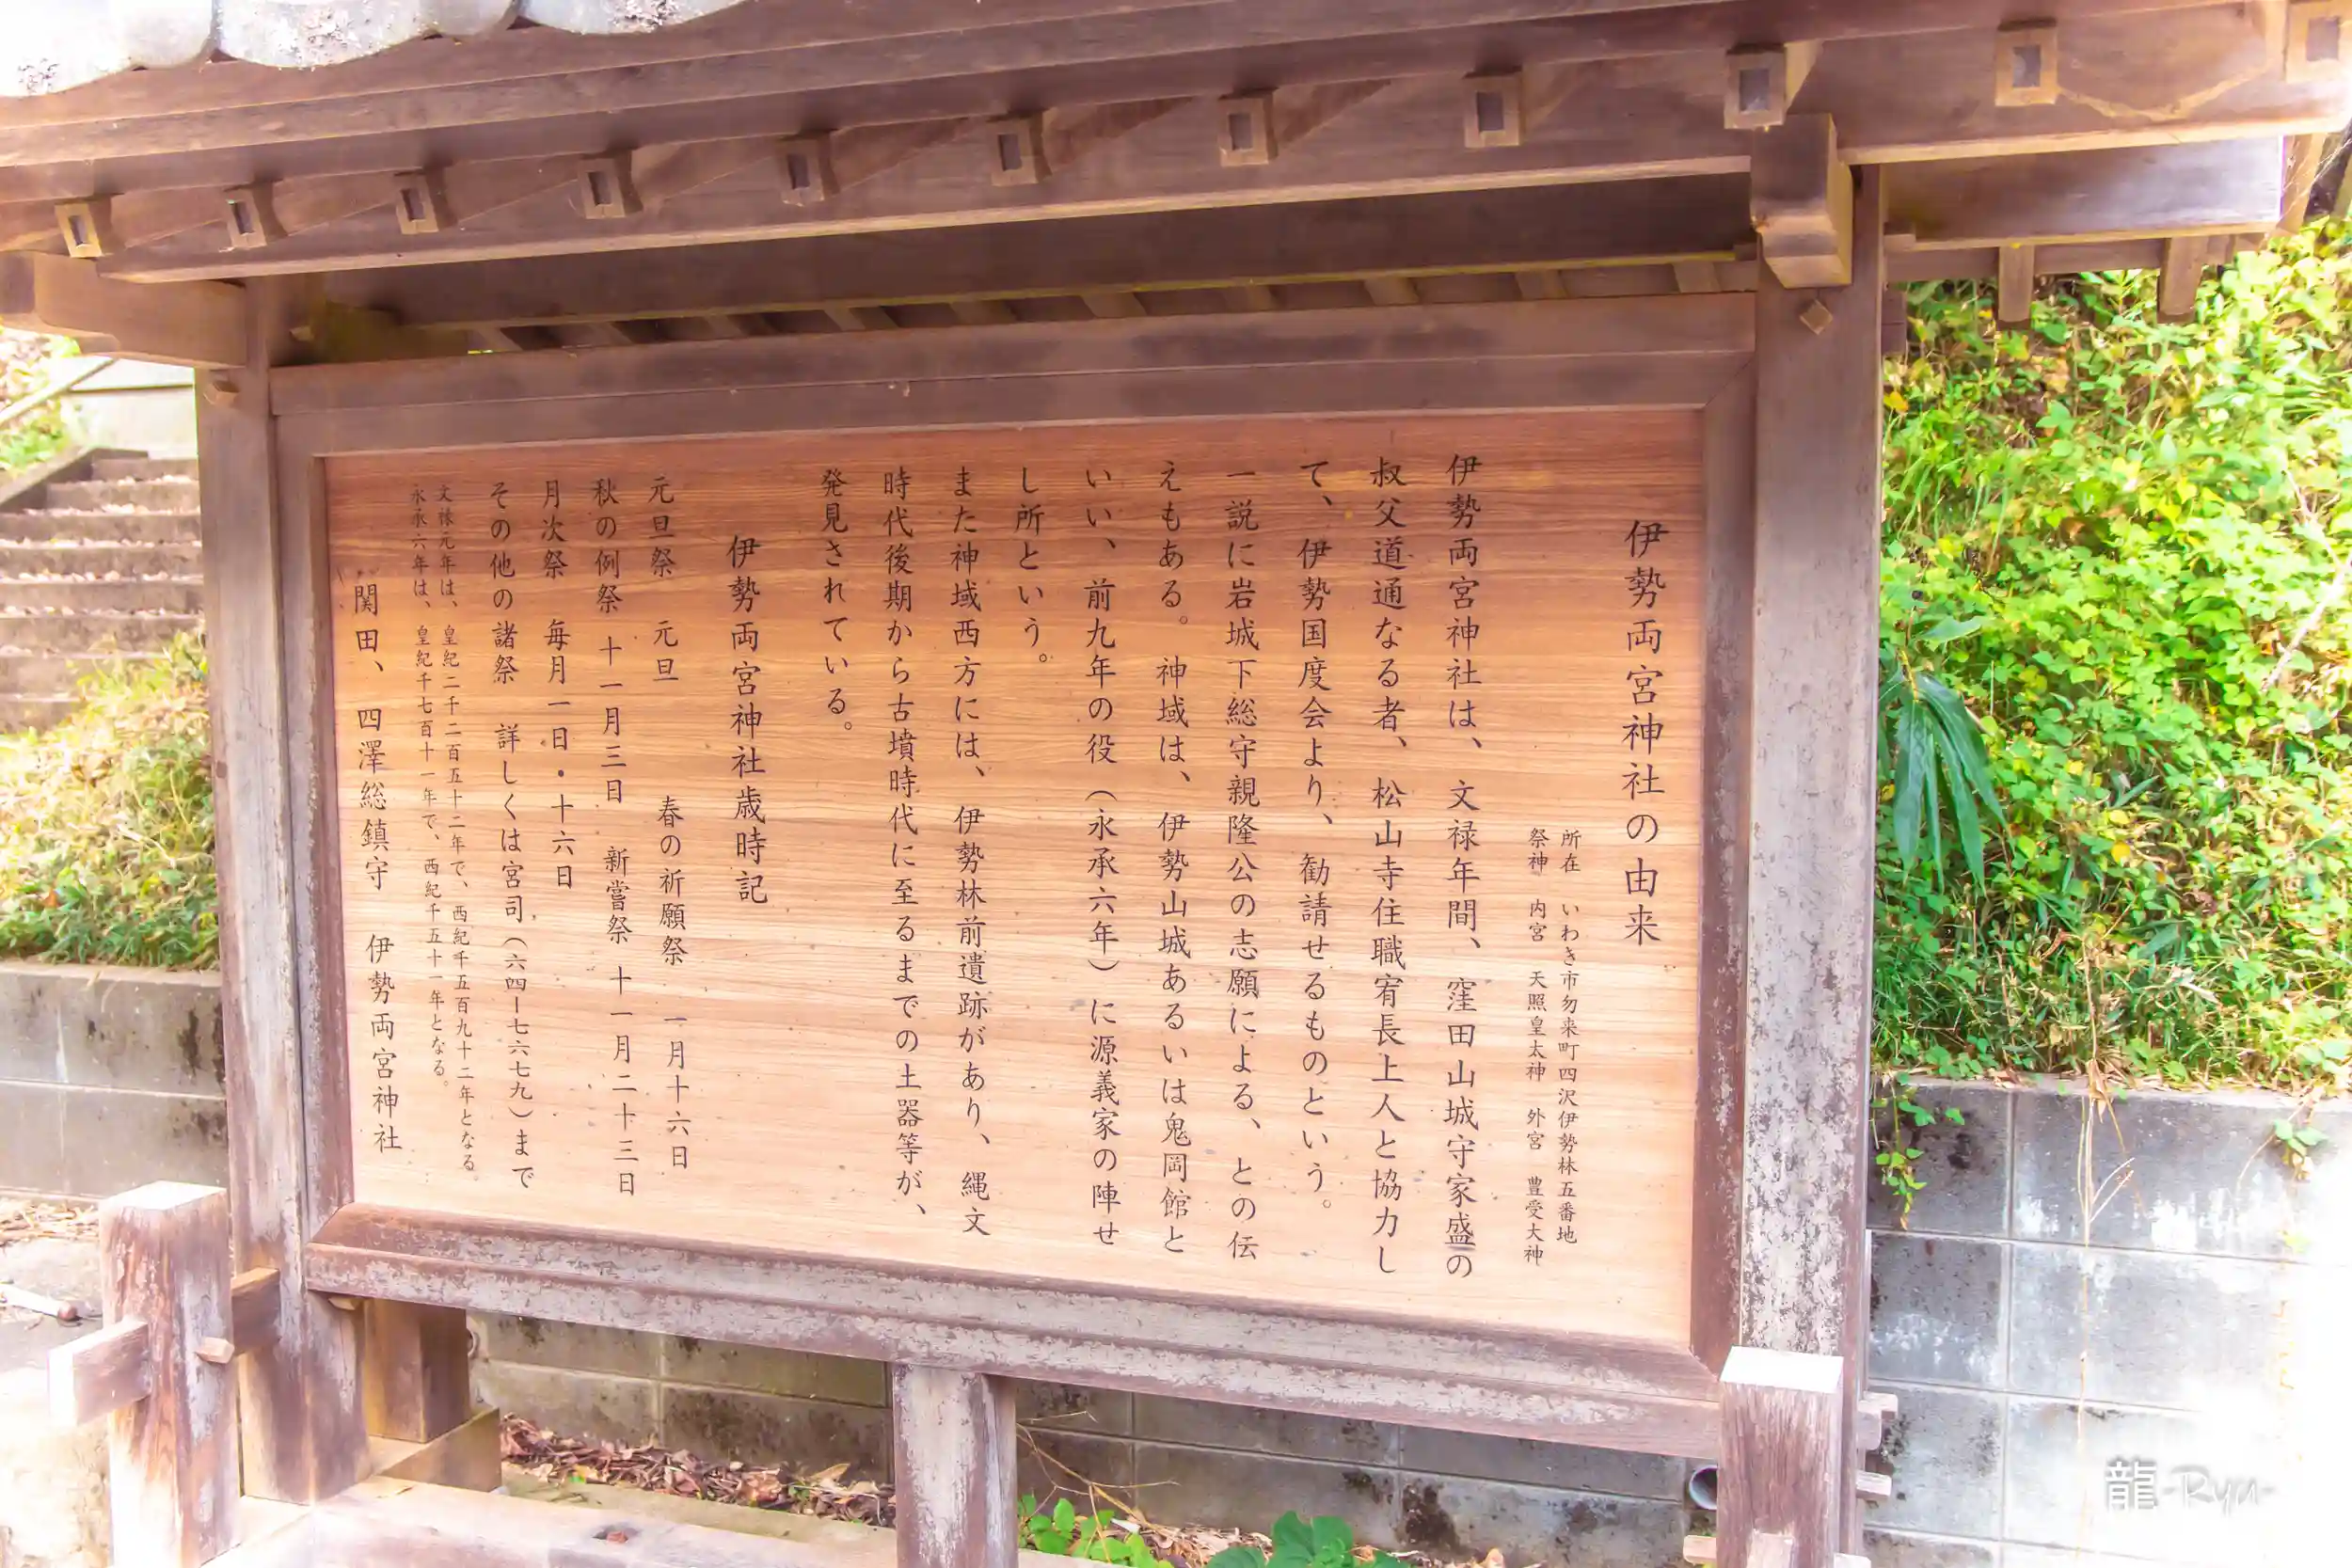 伊勢両宮神社の由来
所在　いわき市勿来町四沢伊勢林五番地
祭神　内宮　天照皇太神　外宮　豊受大神
伊勢両宮神社は、文禄年間、窪田山城守家盛の
叔父道通なる者、松山寺住職宥長上人と協力し
て、伊勢国度会より、勧請せるものという。
一説に岩城下総守親隆公の志願による、との伝
えもある。神域は、伊勢山城あるいは鬼岡館と
いい、前九年の役（永承六年）に源義家の陣せ
し所という。
また神域西方には、伊勢林前遺跡があり、縄文
時代後期から古墳時代に至るまでの土器等が、
発見されている。
伊勢両宮神社歳時記
元旦祭　元旦　春の祈願祭　一月十六日
秋の例祭　十一月三日　新嘗祭　十一月二十三日
月次祭　毎月一日・十六日
その他の諸祭　詳しくは宮司（六四ー七六七九）まで
文禄元年は、皇紀二千二百五十二年で、西紀千五百九十二年となる
永承六年は、皇紀千七百十一年で、西紀千五十一年となる。
関田、四澤総鎮守　伊勢両宮神社
龍-Ryu-